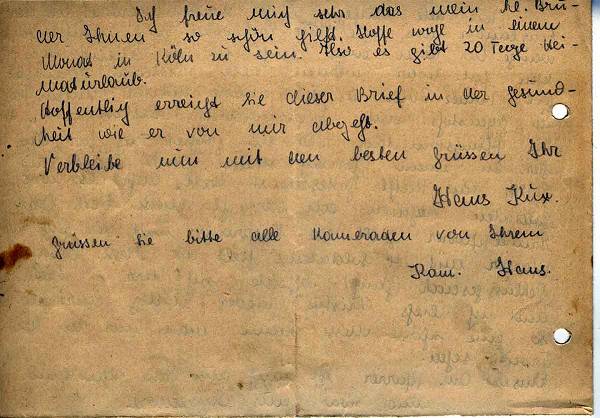 Ich freue mich sehr das mein lb. Bru-
der Ihnen so schön hilft. Hoffe wage in einem
Monat in Köln zu sein. Also es gibt 20 Tage Hei-
maturlaub.
Hoffentlig erreigt Sie dieser Brief in der gesund-
heit wie er von mir abgeht.
Verbleibe nun mit den besten grüssen Ihr
Hans Kux.
grüssen Sie bitte alle Kameraden von Ihrem
Kam. Hans.